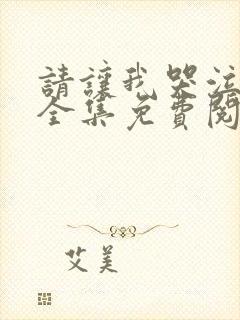 請讓我哭泣
全集免費閱
艾美